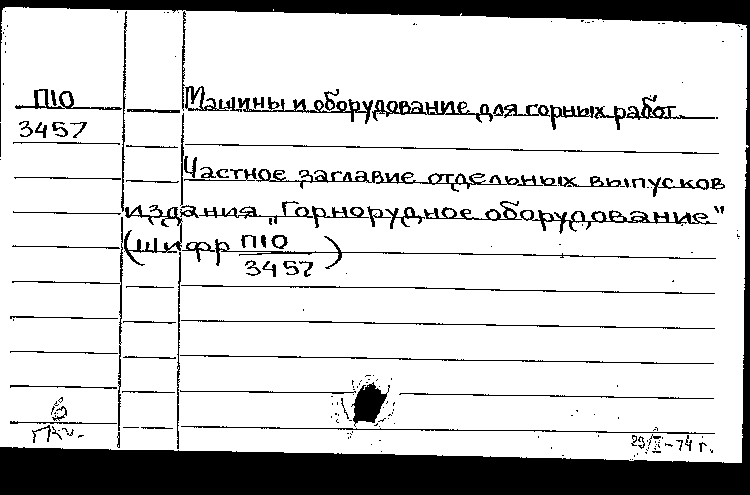 П10
3457
Машины и оборудование для горных работ.
Частное заглавие отдельных выпусков
издания „Горнорудное оборудование"
(шифр П10
3457)
6
29/X-74 г.